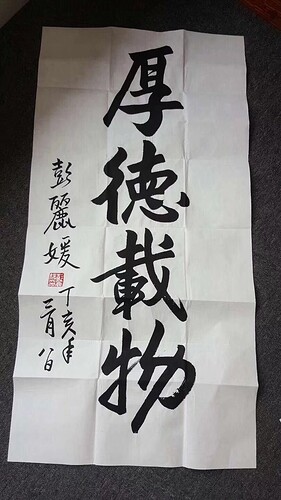 厚德載物
彭麗媛
丁亥年
三月八日